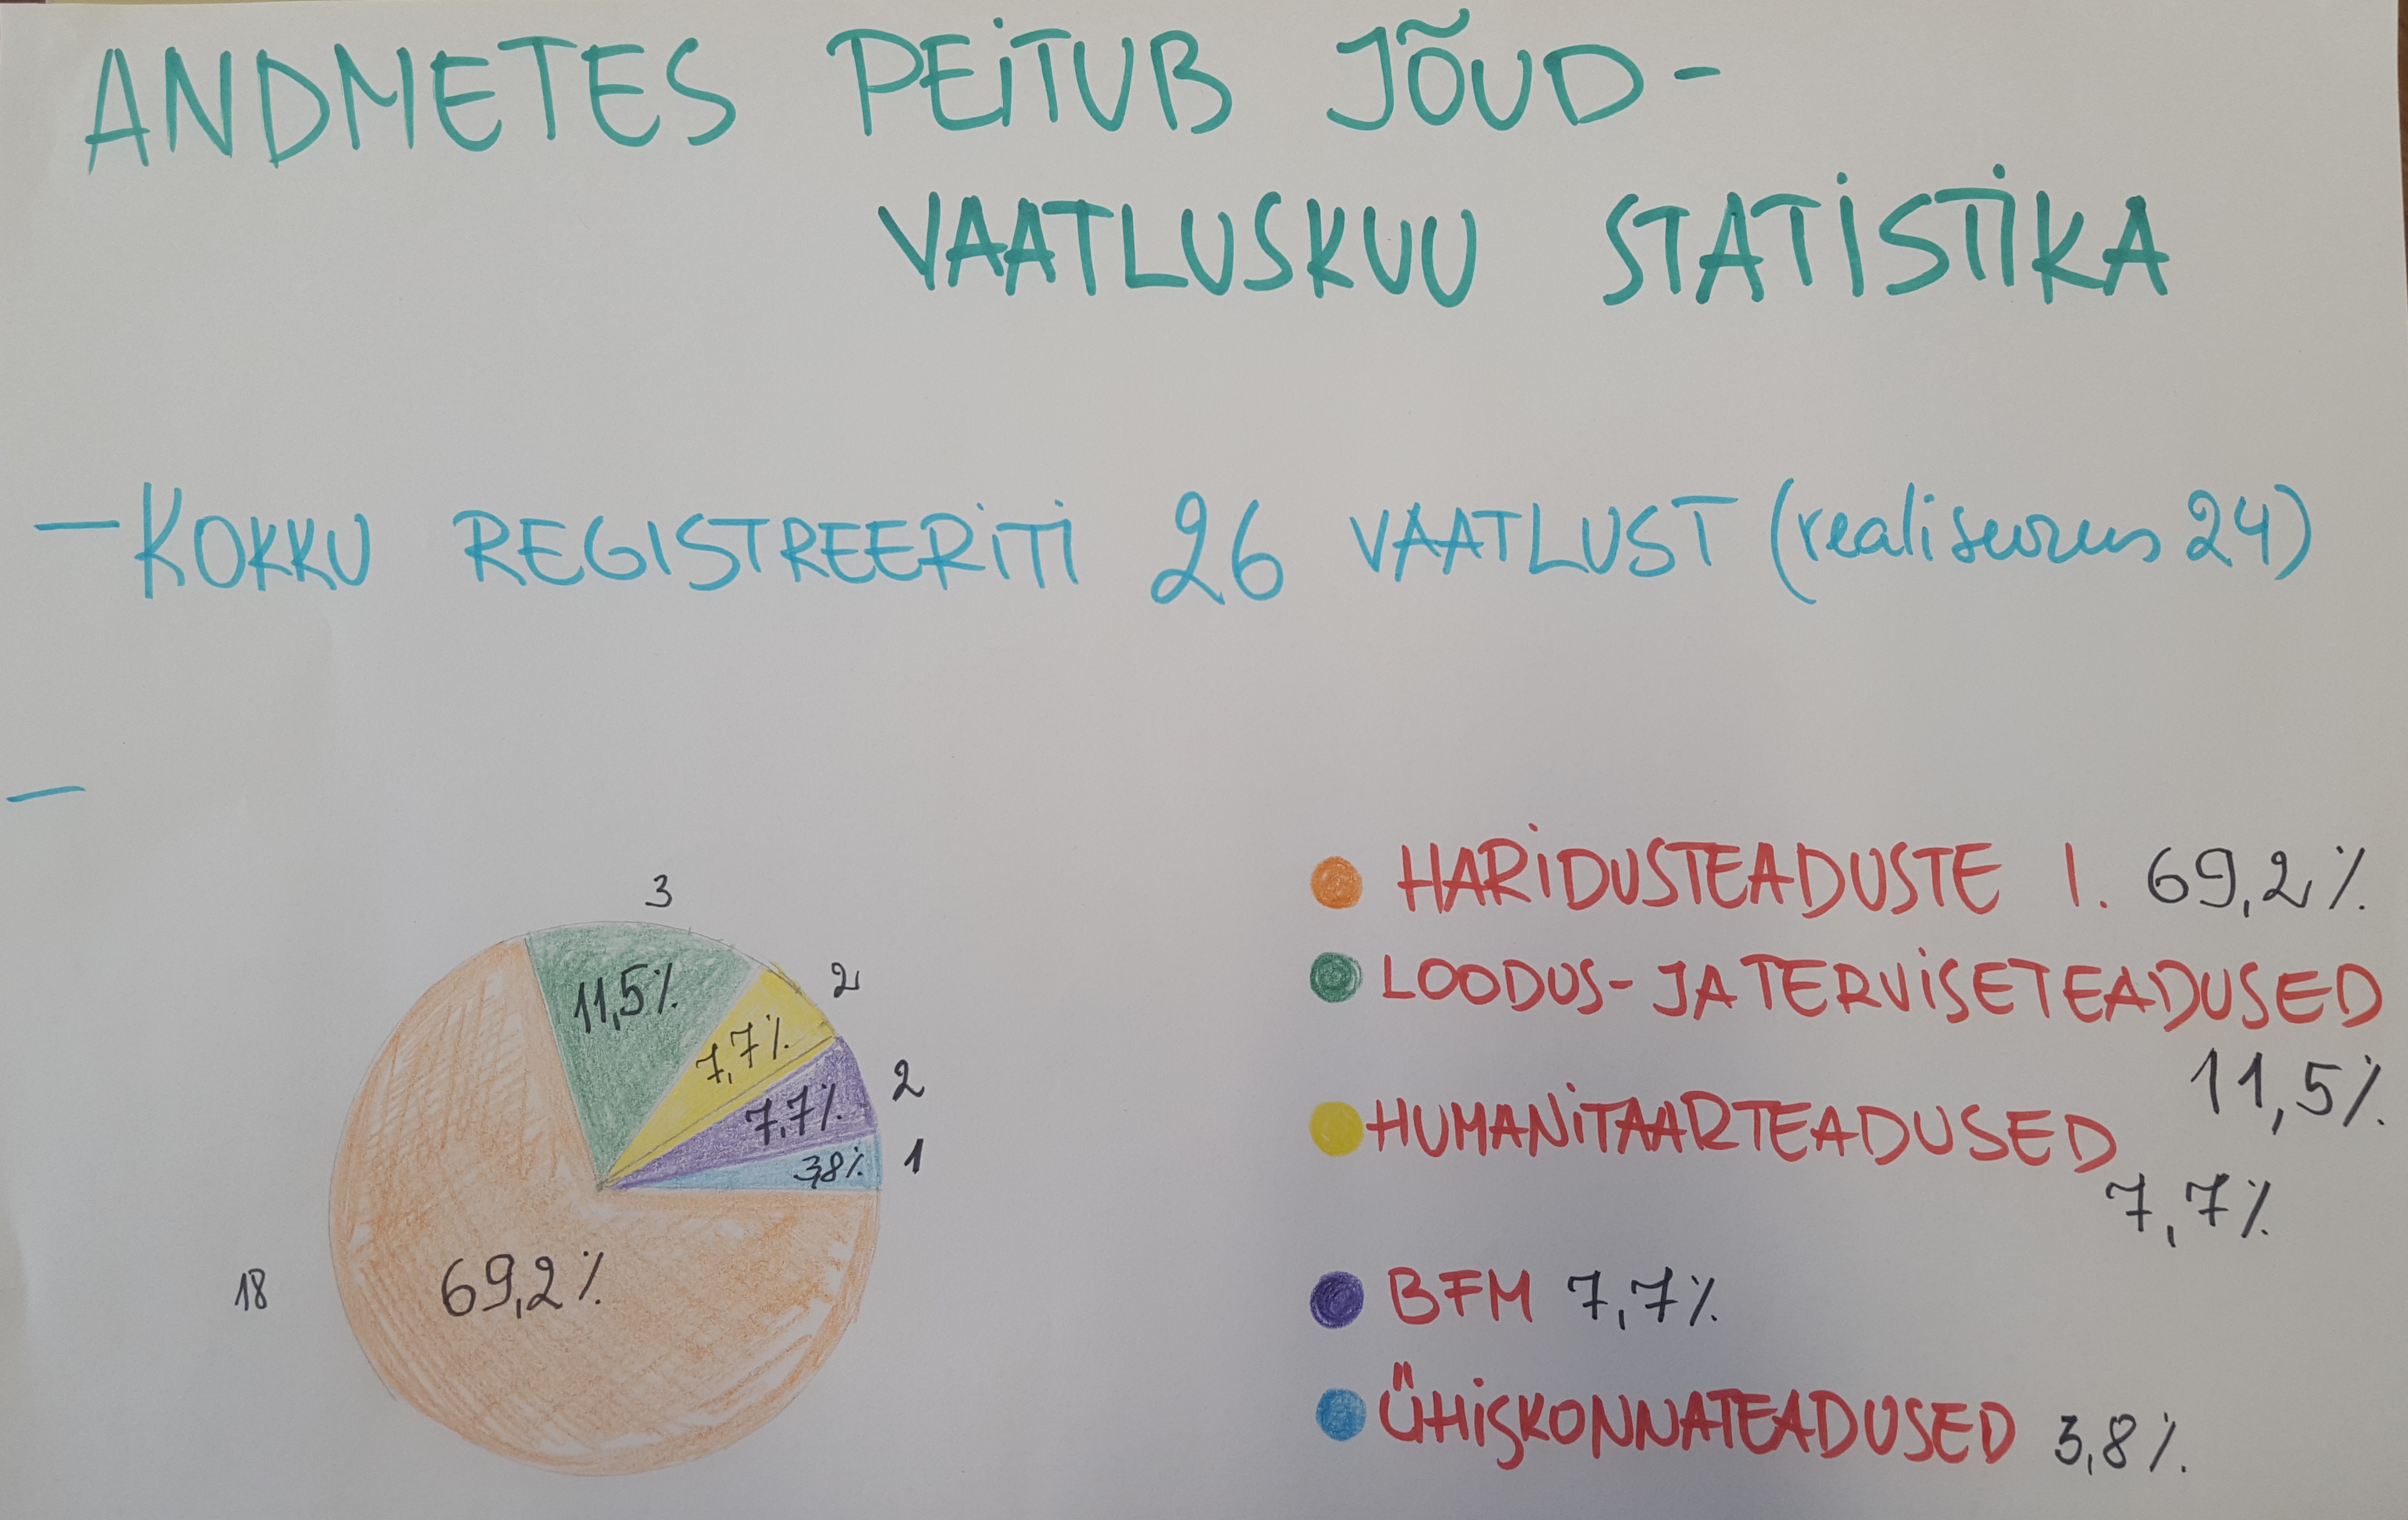 ANDMETES PEITUB JÕUD-
VAATLUSKUU STATISTIKA
- KOKKU REGISTREERITI 26 VAATLUST (realiseerus 24)
-
3
11,5%
2
7,7%
2
7,7%
1
3,8%
18
69,2%
HARIDUSTEADUSTE I. 69,2%
LOODUS- JA TERVISETEADUSED
11,5%
HUMANITAARTEADUSED
7,7%
BFM 7,7%
ÜHISKONNATEADUSED 3,8%